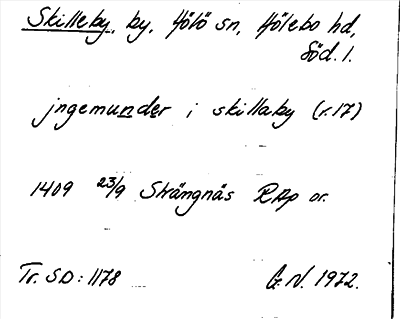 Skilleby, by, Hölö sn, Hölebo hd,
Söd. l.
jngemunder i skillaby (r.17)
1409 23/9 Strängnäs RAp or.
Tr. SD: 1178 G. N. 1972.